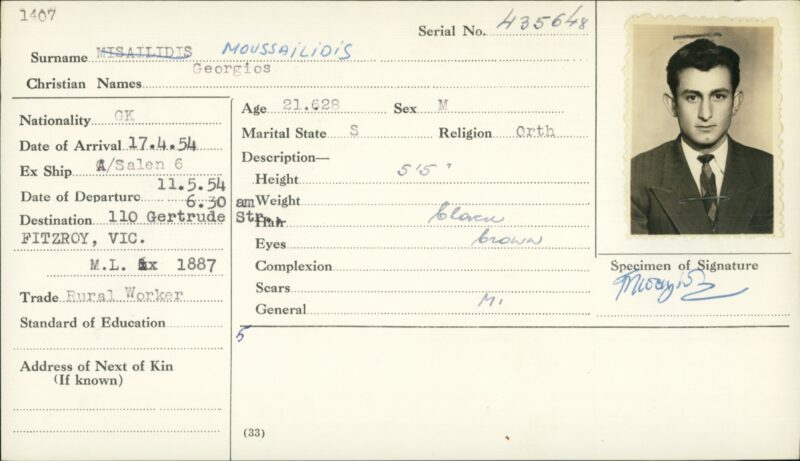 1407
Serial No. 435648
Surname MISAILIDIS MOUSSAILIDIS
Christian Names Georgios
Nationality GK
Date of Arrival 17.4.54
Ex Ship A/Salen 6
Date of Departure 11.5.54
6.30 am
Destination 110 Gertrude Str.
FITZROY, VIC.
M.L. 1887
Trade Rural Worker
Standard of Education
Address of Next of Kin
(If known)
Age 21.628 Sex M
Marital State S Religion Orth
Description—
Height 5'5"
Weight
Hair black
Eyes brown
Complexion
Scars
General M.
5
(33)
Specimen of Signature